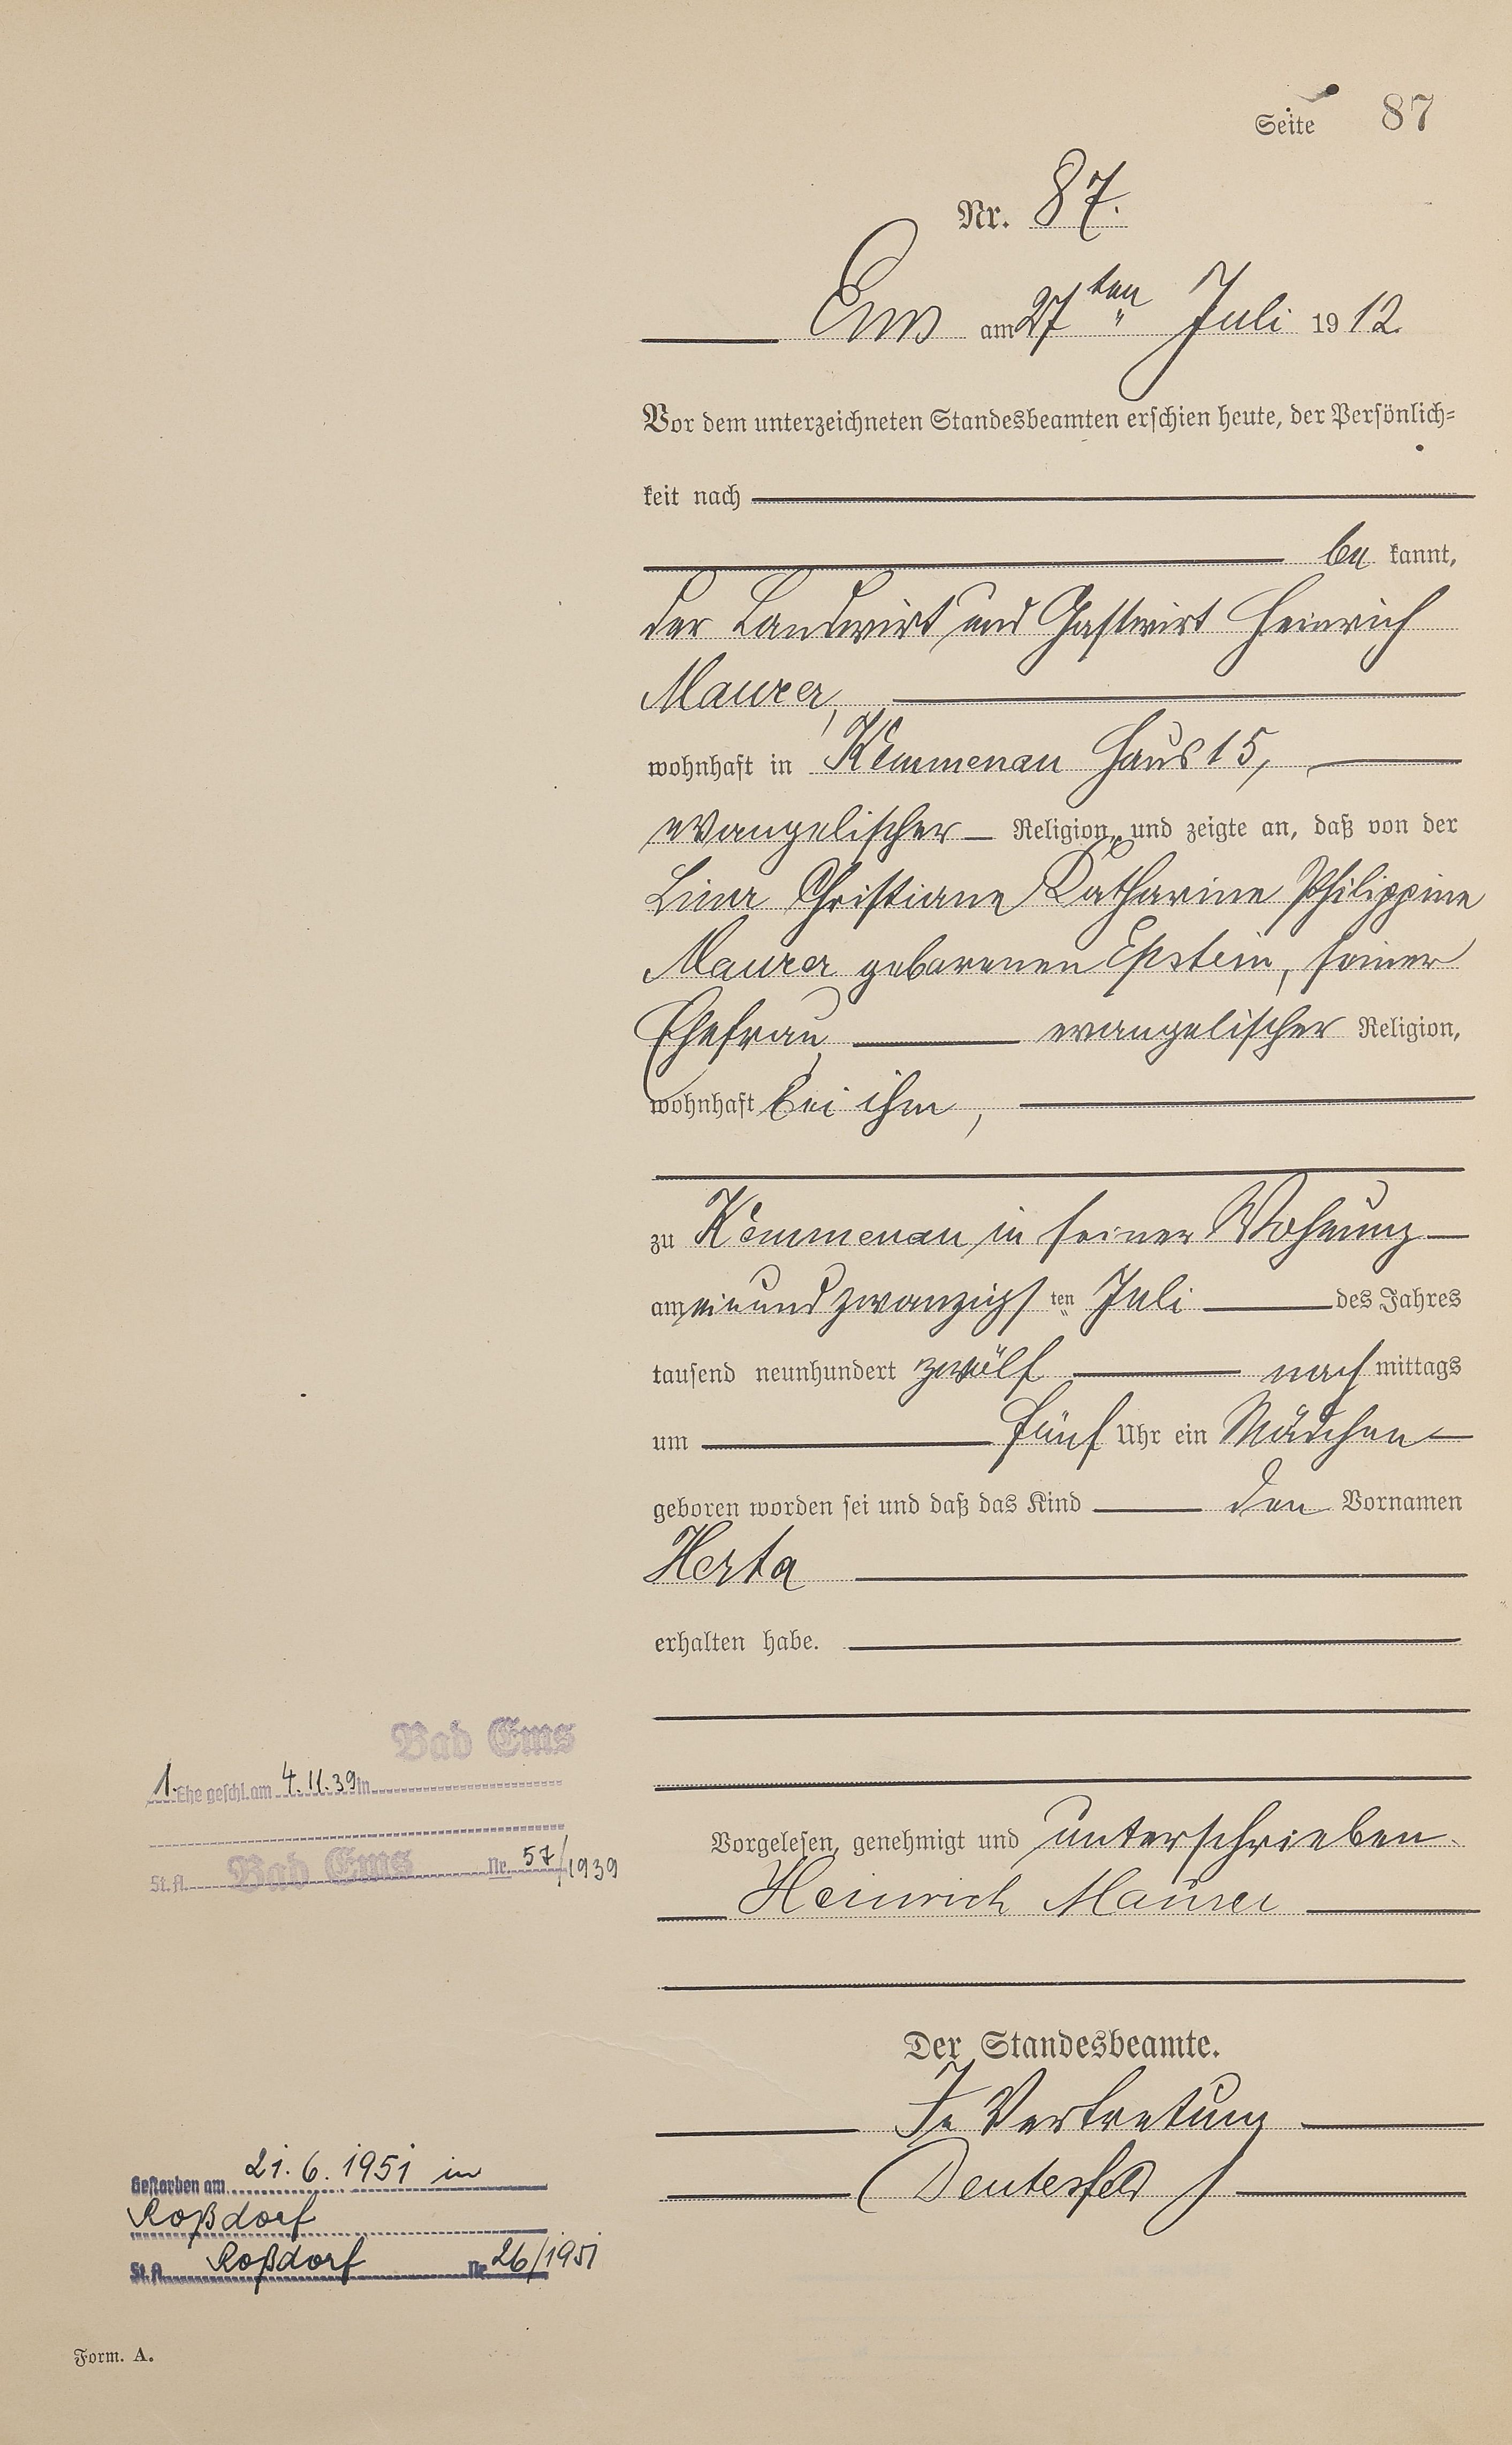 Seite 87
Nr. 87.
Ems am 27ten Juli 1912.
Vor dem unterzeichneten Standesbeamten erschien heute, der Persönlich-
keit nach
be kannt,
der Landwirt und Gastwirt Heinrich
Maurer,
wohnhaft in Kemmenau Haus 15,
evangelischer Religion, und zeigte an, daß von der
Lina Christiane Katharine Philippine
Maurer geborenen Epstein, seiner
Ehefrau, evangelischer Religion,
wohnhaft bei ihm,
zu Kemmenau in seiner Wohnung
am einundzwanzigsten Juli des Jahres
tausend neunhundert zwölf nachmittags
um fünf Uhr ein Mädchen
geboren worden sei und daß das Kind den Vornamen
Herta
erhalten habe.
Vorgelesen, genehmigt und unterschrieben.
Heinrich Maurer
Der Standesbeamte.
In Vertretung
Bad Ems
1. Ehe geschl. am 4.11.39 in
St.A. Bad Ems Nr. 57/1939
Gestorben am 21.6.1951 in
Roßdorf
St.A. Roßdorf Nr. 26/1951
Form. A.